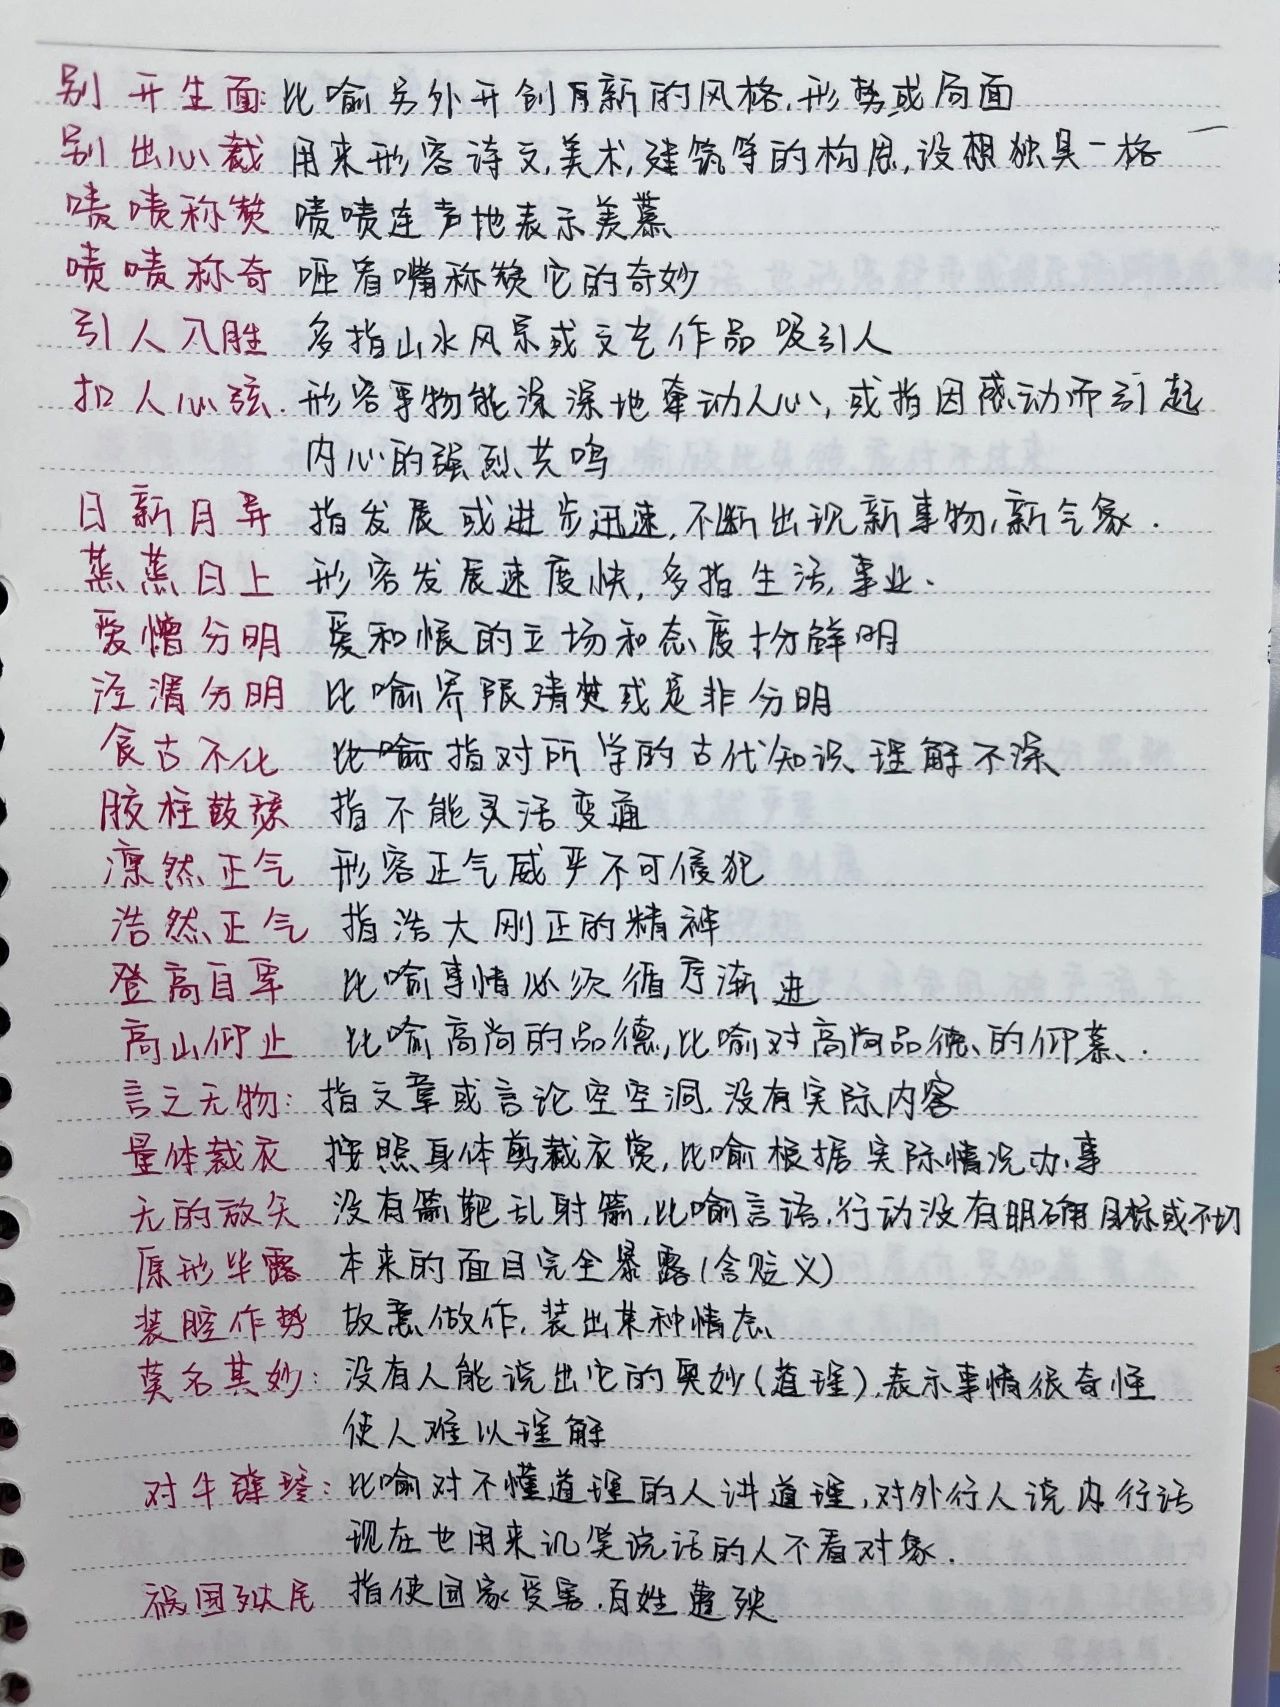 别开生面:比喻另外开创月新的风格,形势或局面
别出心裁 用来形容诗文,美术,建筑等的构思,设想独具一格
啧啧称赞 啧啧连声地表示羡慕
啧啧称奇 咂着嘴称赞它的奇妙
引人入胜 多指山水风景或文艺作品吸引人
扣人心弦. 形容事物能深深地牵动人心,或指因感动而引起
内心的强烈共鸣
日新月异 指发展或进步迅速,不断出现新事物,新气象.
蒸蒸日上 形容发展速度快,多指生活,事业.
爱憎分明 爱和恨的立场和态度十分鲜明
泾渭分明 比喻界限清楚或是非分明
食古不化 比喻指对所学的古代知识理解不深
胶柱鼓瑟 指不能灵活变通
凛然正气 形容正气威严不可侵犯
浩然正气 指浩大刚正的精神
登高自卑 比喻事情必须循序渐进
高山仰止 比喻高尚的品德,比喻对高尚品德的仰慕.
言之无物: 指文章或言论空空洞,没有实际内容
量体裁衣 按照身体剪裁衣裳,比喻根据实际情况办事
无的放矢 没有箭靶乱射箭,比喻言语,行动没有明确目标或不切
原形毕露 本来的面目完全暴露(含贬义)
装腔作势 故意做作,装出某种情态
莫名其妙: 没有人能说出它的奥妙(道理),表示事情很奇怪
使人难以理解
对牛弹琴: 比喻对不懂道理的人讲道理,对外行人说内行话
现在也用来讥笑说话的人不看对象.
祸国殃民 指使国家受害,百姓遭殃